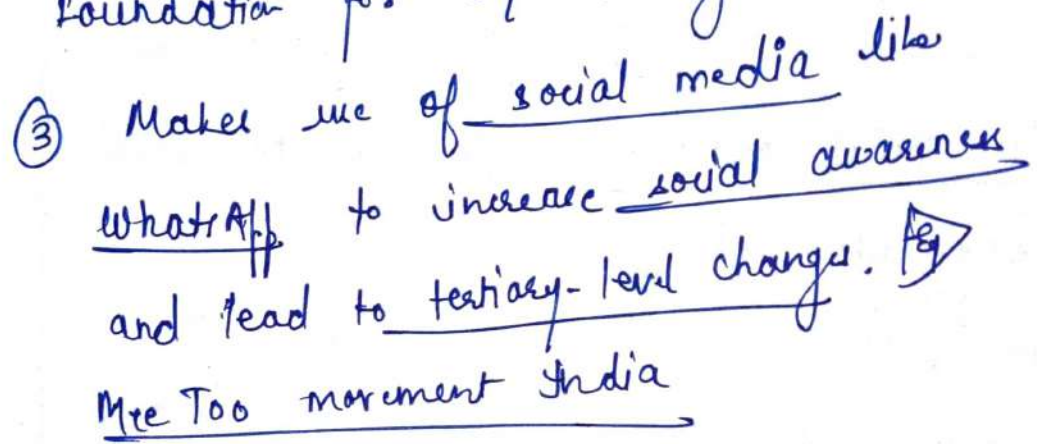 Foundation
③ Makes use of social media like
WhatsApp to increase social awareness
and lead to tertiary-level changes. Eg
Mee Too movement India